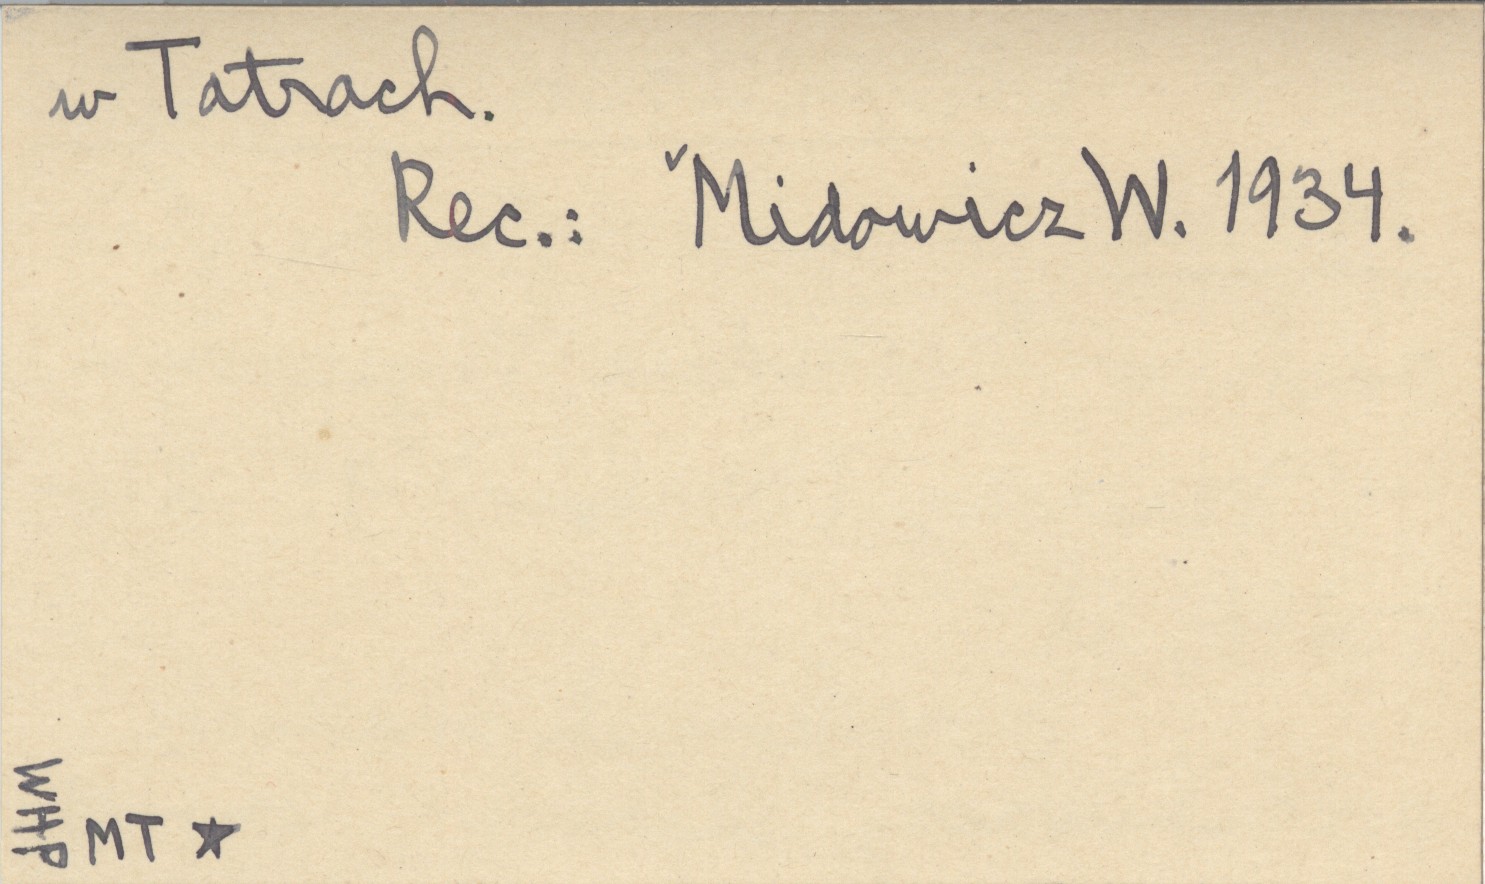 w Tatrach.
Rec.: ˅Midowicz W. 1934.
WHP
MT ★